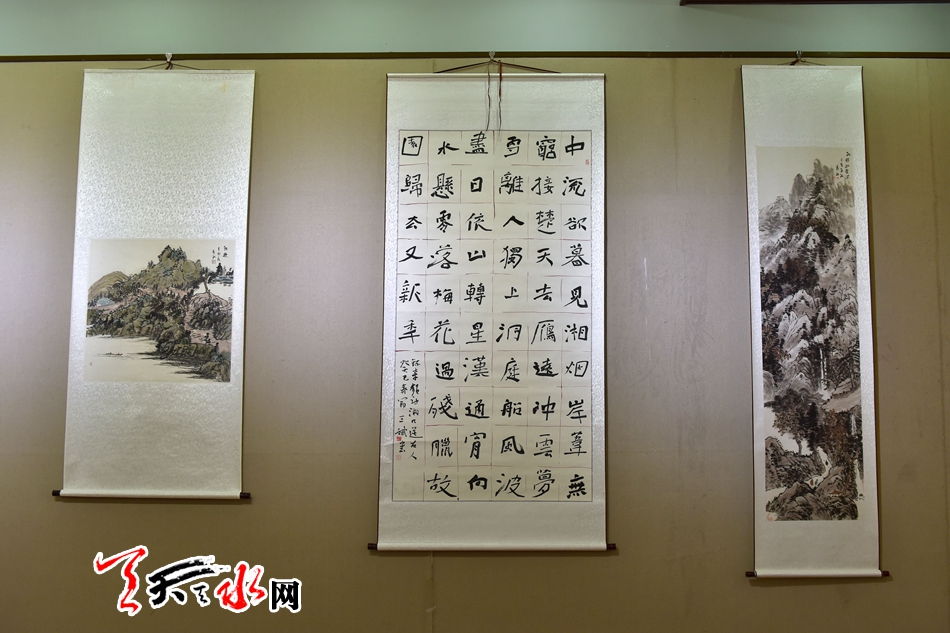 中流欲暮見湘烟岸葦無
窮接楚天去鴈遠冲雲夢
雪離人獨上洞庭船風波
盡日依山轉星漢通宵向
水懸零落梅花過殘臘故
園歸去又新年
李頻湘口送友人
天天天水网